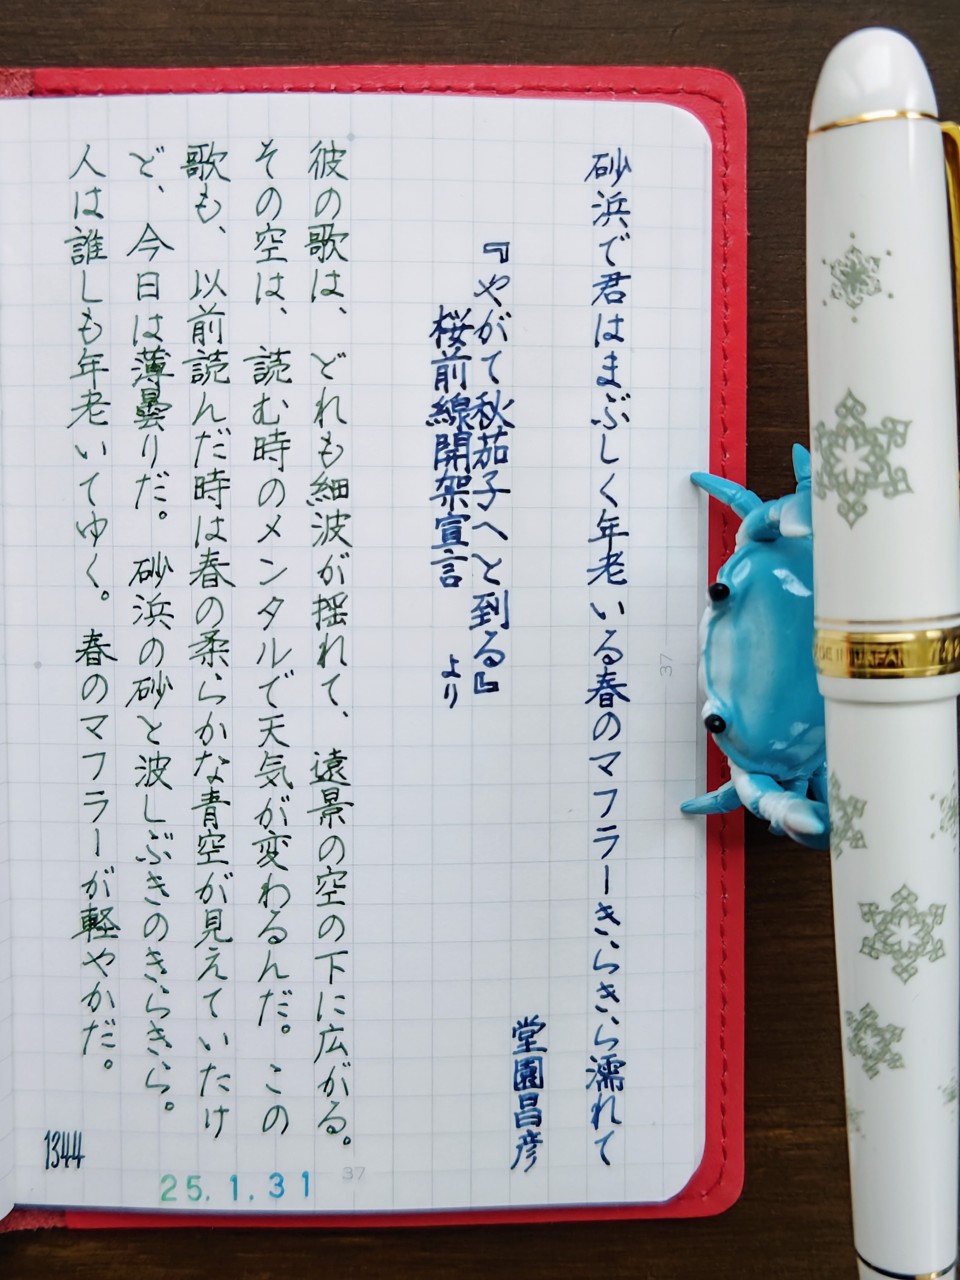 砂浜で君はまぶしく年老いる春のマフラーきらきら濡れて
堂園昌彦
『やがて秋茄子へと到る』
桜前線開架宣言 より
彼の歌は、どれも細波が揺れて、遠景の空の下に広がる。
その空は、読む時のメンタルで天気が変わるんだ。この
歌も、以前読んだ時は春の柔らかな青空が見えていたけ
ど、今日は薄曇りだ。砂浜の砂と波しぶきのきらきら。
人は誰しも年老いてゆく。春のマフラーが軽やかだ。
1344
25.1.31
37
37